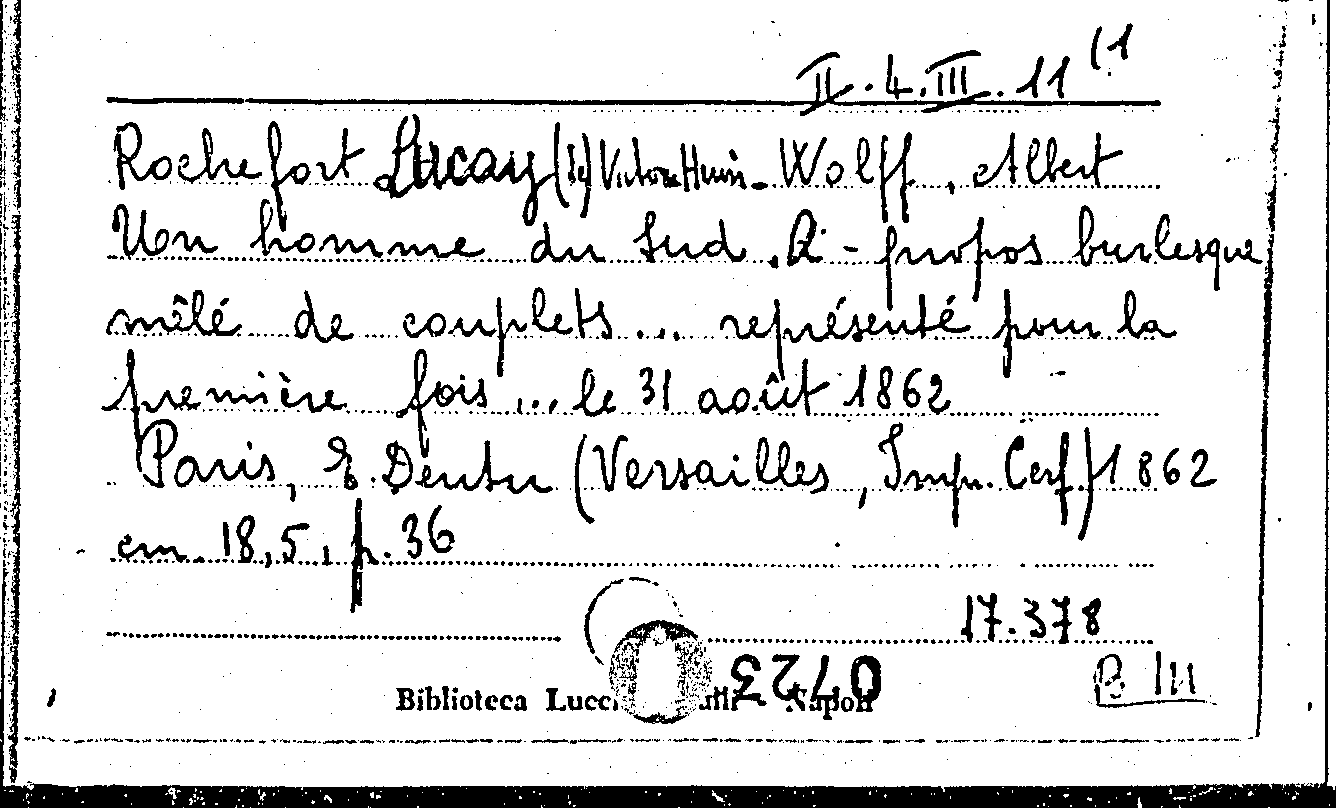 II.4.III.11(1
Rochefort Lucay (de) Victor Henri - Wolff, Albert
Un homme du Sud. À-propos burlesque
mêlé de couplets... représenté pour la
première fois... le 31 août 1862
Paris, E. Dentu (Versailles, Imp. Cerf) 1862
cm. 18,5, p. 36
17.378
Biblioteca Napoli